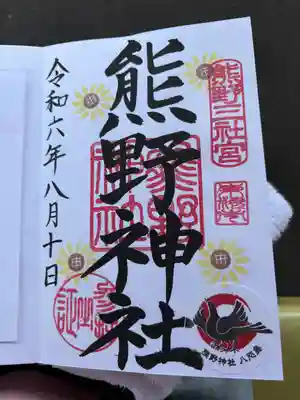 熊野三社宮
熊野神社
令和六年八月十日
熊野神社 八咫烏